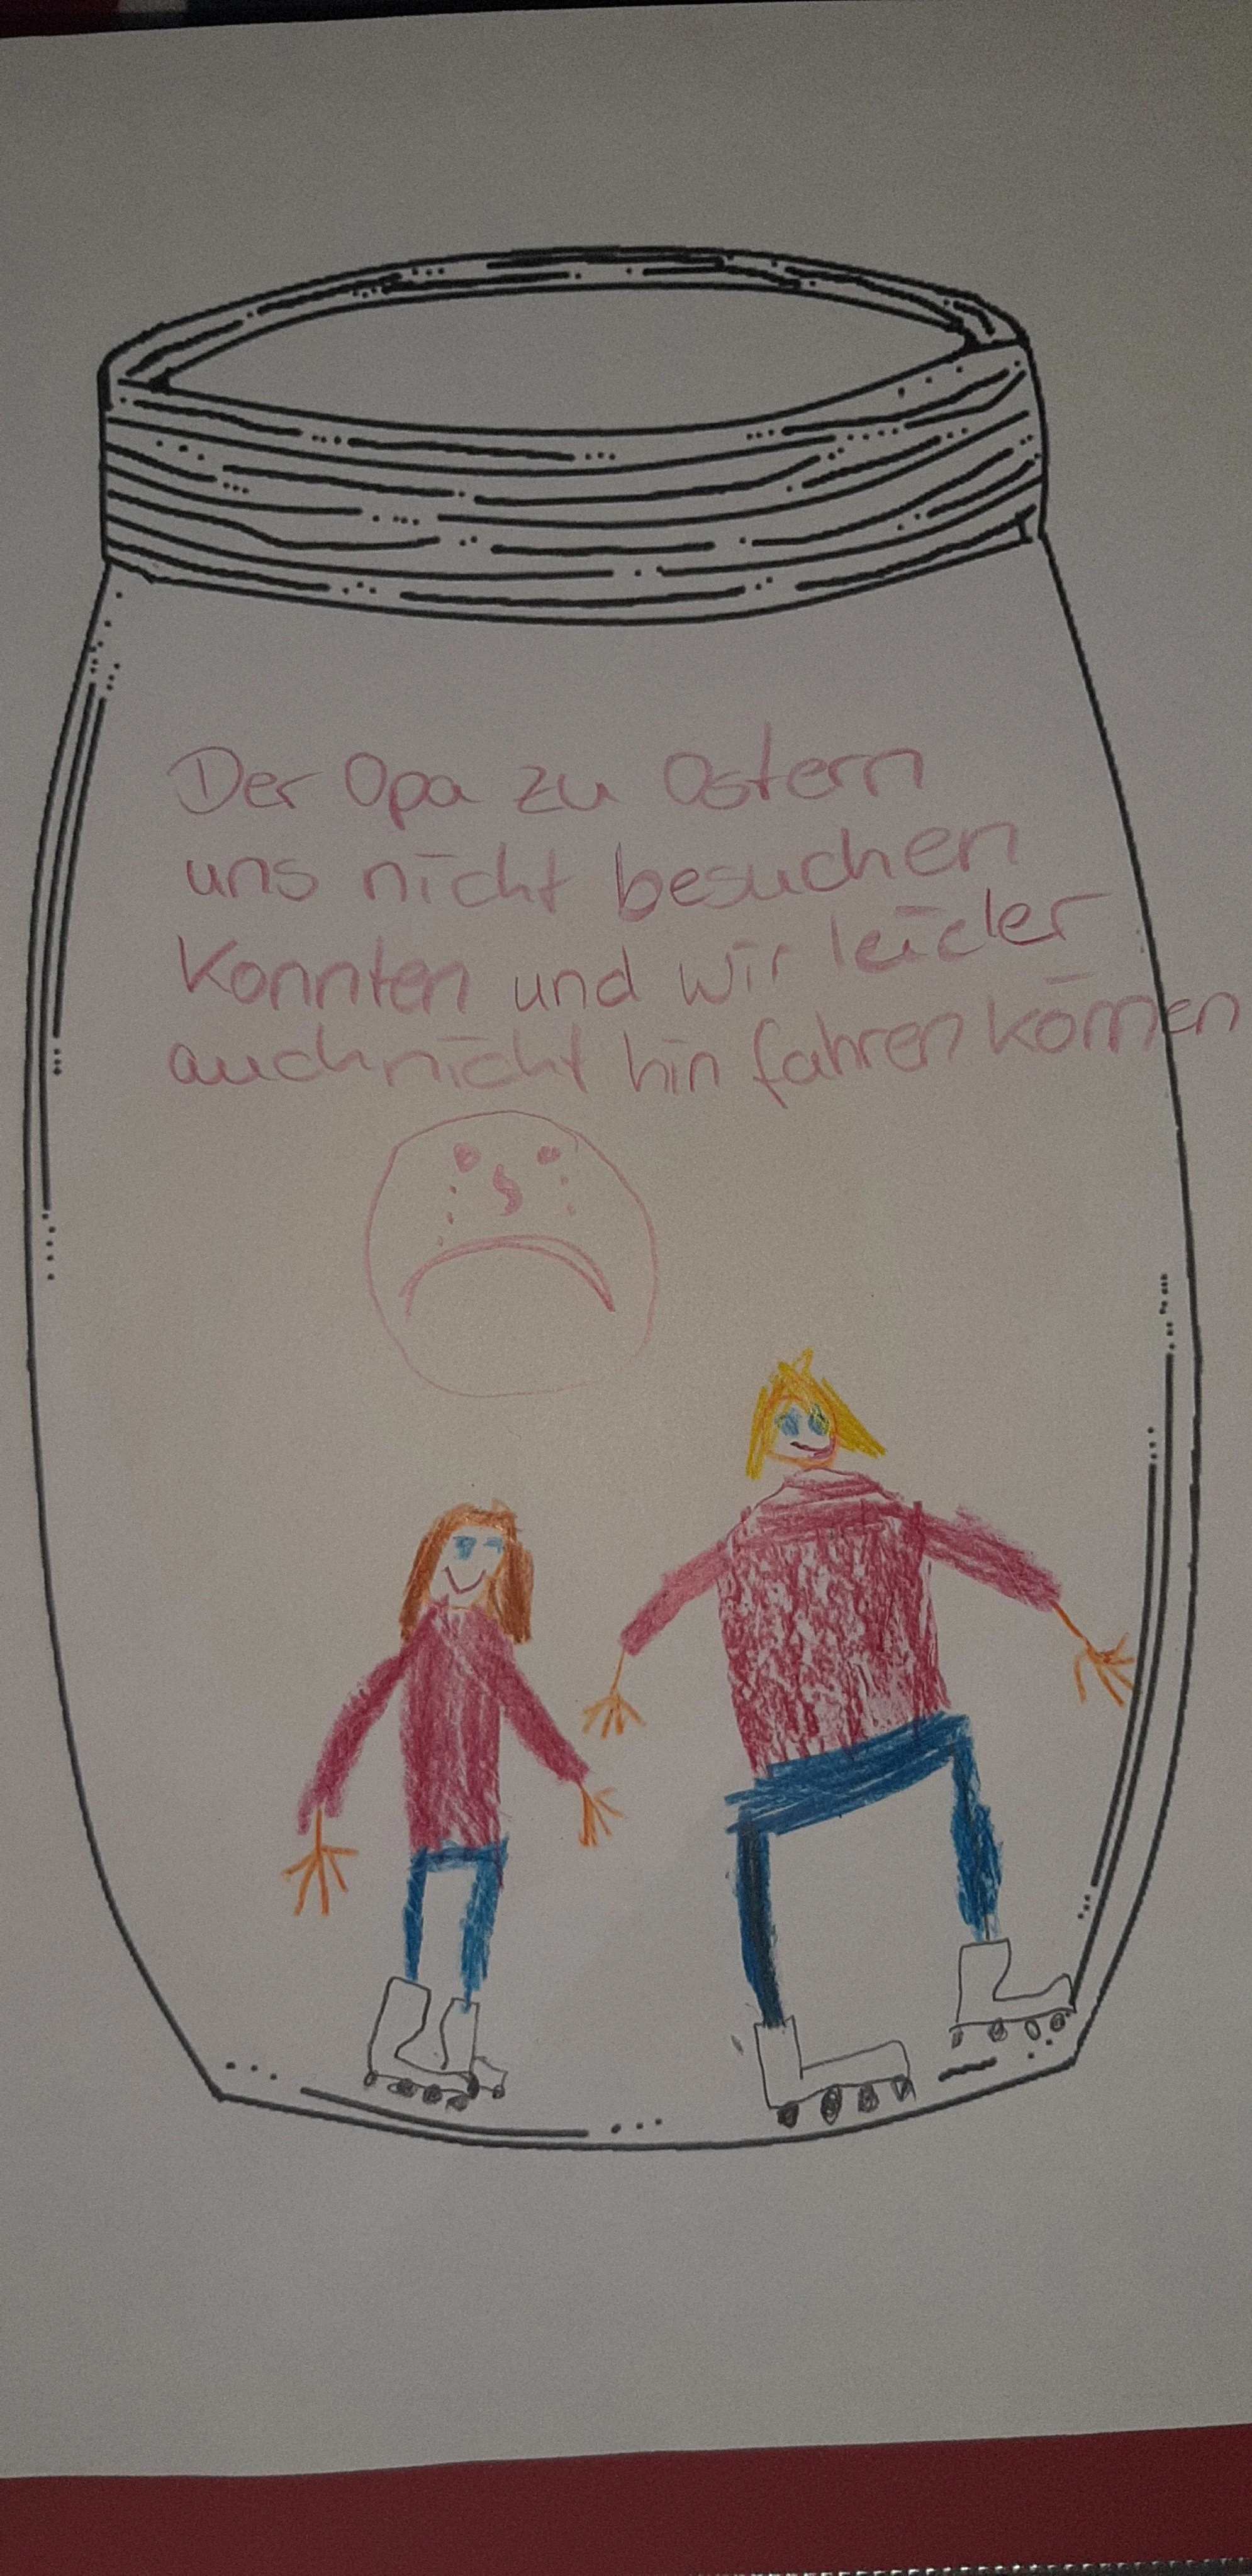 Der Opa zu Ostern
uns nicht besuchen
Konnten und wir leider
auch nicht hin fahren können